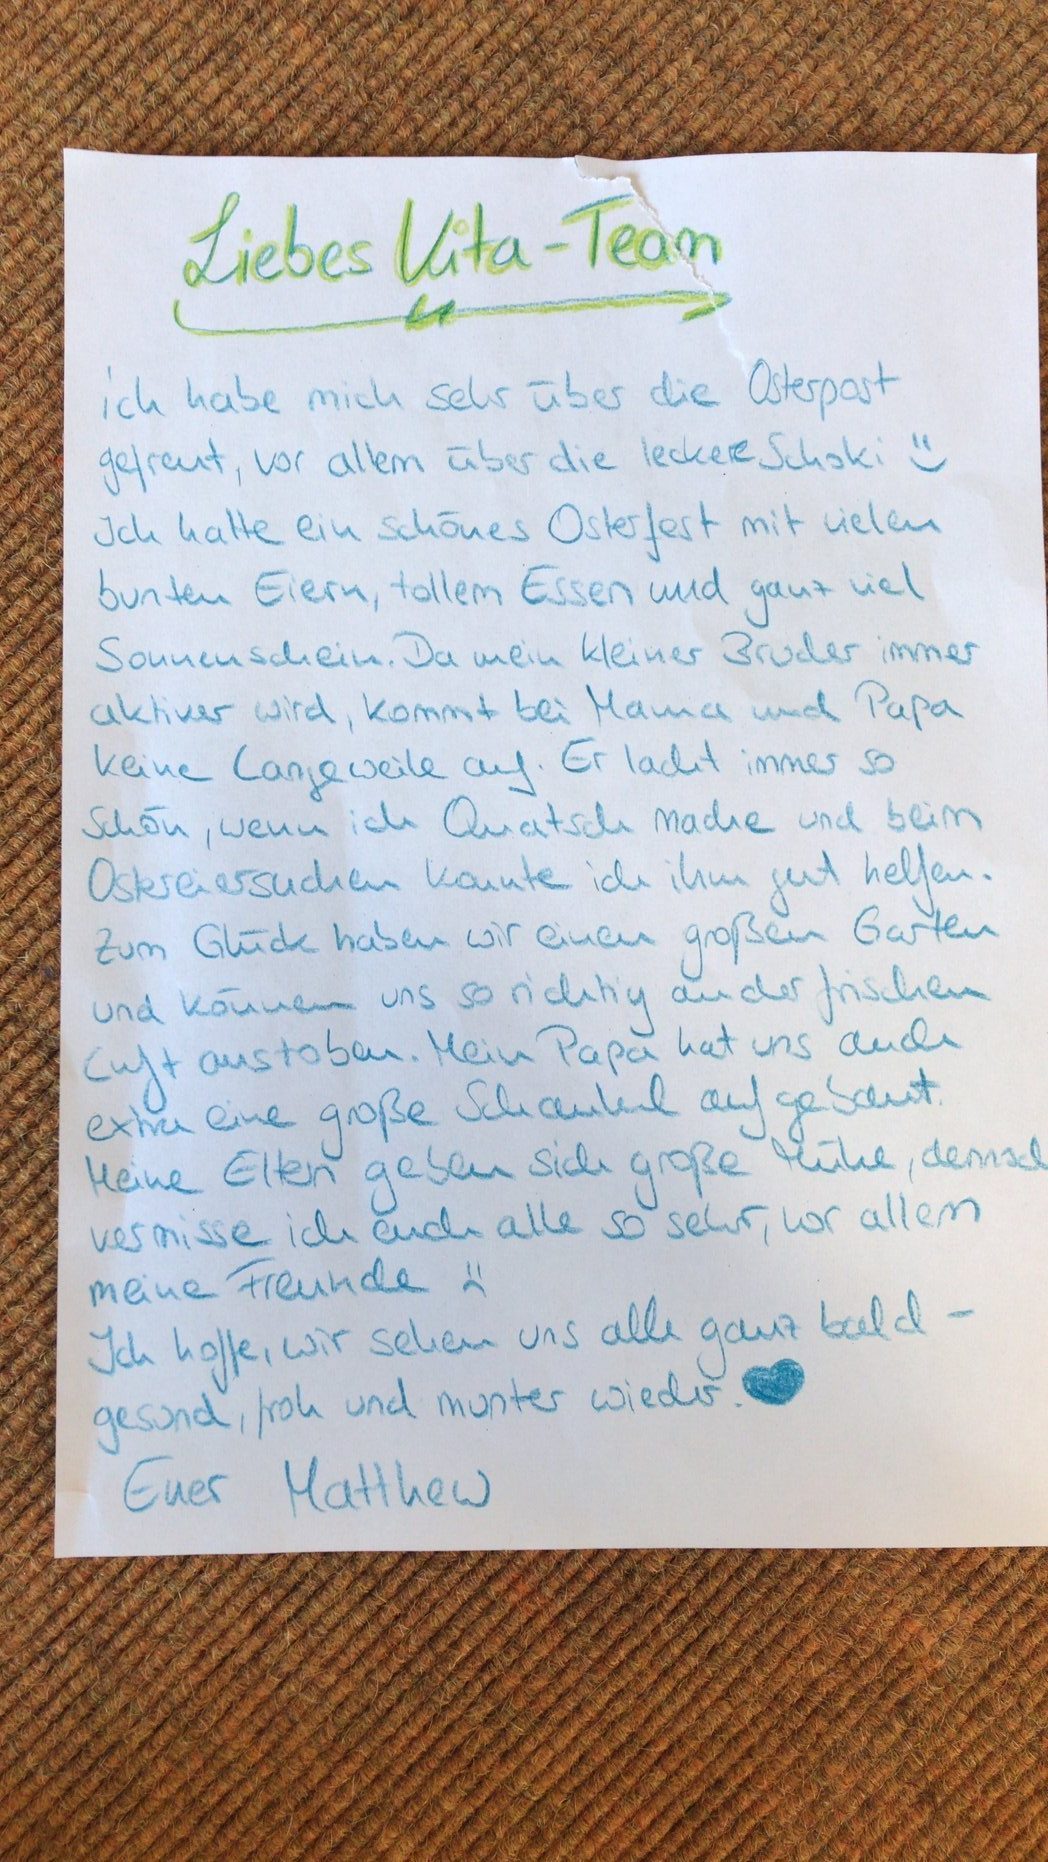 Liebes Kita-Team
ich habe mich sehr über die Osterpost
gefreut, vor allem über die leckere Schoki ☺
Ich hatte ein schönes Osterfest mit vielen
bunten Eiern, tollem Essen und ganz viel
Sonnenschein. Da mein kleiner Bruder immer
aktiver wird, kommt bei Mama und Papa
keine Langeweile auf. Er lacht immer so
schön, wenn ich Quatsch mache und beim
Ostereiersuchen konnte ich ihm gut helfen.
Zum Glück haben wir einen großen Garten
und können uns so richtig an der frischen
Luft austoben. Mein Papa hat uns auch
extra eine große Schaukel aufgebaut.
Meine Eltern geben sich große Mühe, dennoch
vermisse ich euch alle so sehr, vor allem
meine Freunde ☹
Ich hoffe, wir sehen uns alle ganz bald -
gesund, froh und munter wieder. ♥
Euer Matthew